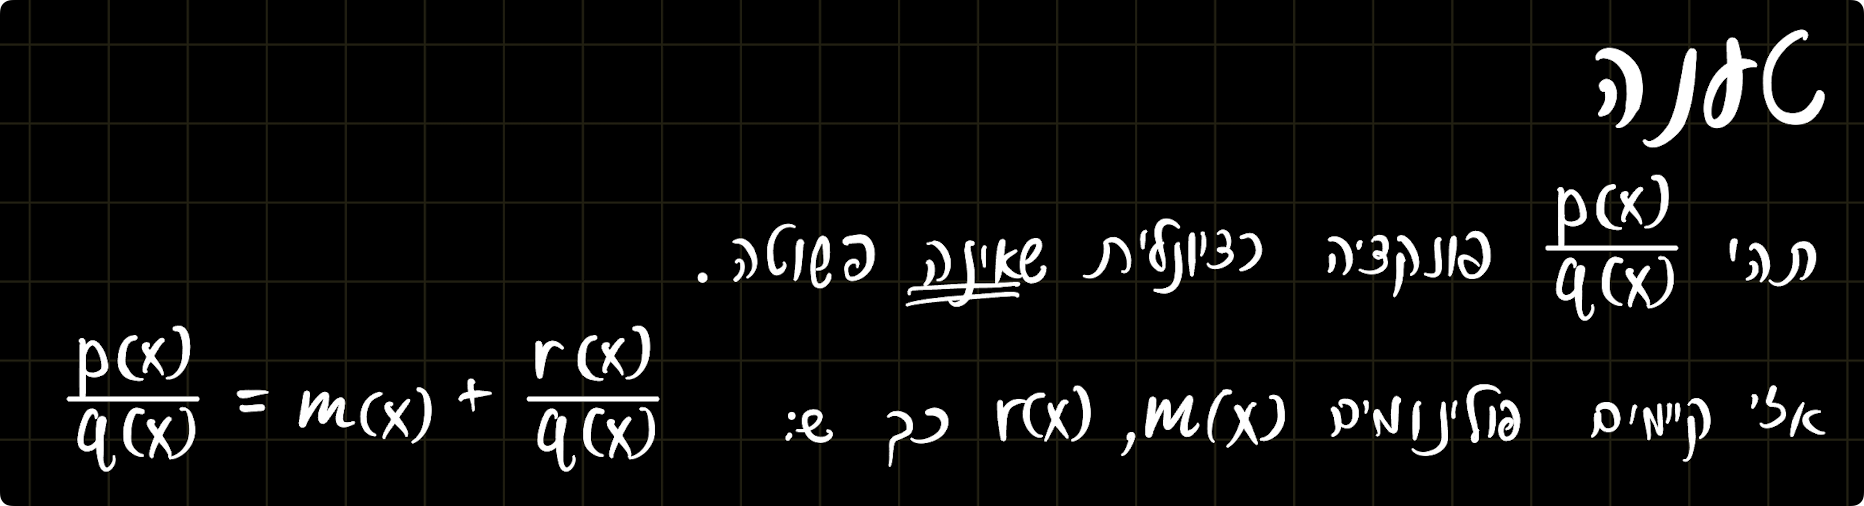 טענה
תהי p(x)/q(x) פונקציה רציונלית שאינה פשוטה.
אזי קיימים פולינומים m(x), r(x) כך ש: p(x)/q(x) = m(x) + r(x)/q(x)